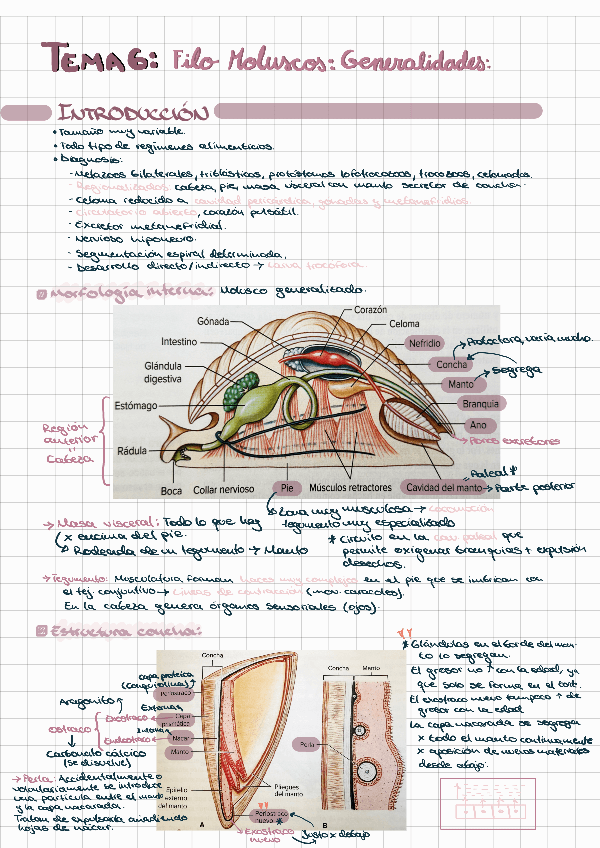 TEMA 6: Filo Moluscos: Generalidades:
INTRODUCCIÓN
• Tamaño muy variable.
• Todo tipo de regímenes alimenticios.
• Diagnosis:
- Metazoos bilaterales, triblásticos, protóstomos lofotrocozoos, trocozoos, celomados.
- Regionalizados: cabeza, pie, masa visceral con manto secretor de concha.
- Celoma reducido a cavidad pericárdica, gónadas y metanefridios.
- Circulatorio abierto, corazón pulsátil.
- Excretor metanefridial.
- Nervioso hiponeuro.
- Segmentación espiral determinada.
- Desarrollo directo/indirecto → Larva trocófora
Morfología interna: Molusco generalizado.
Corazón
Gónada
Celoma
Intestino
Nefridio
Glándula
digestiva
Concha
→ Protectora, varía mucho.
Manto
→ Segrega
Estómago
Branquia
Ano
→ Poros excretores
Región
anterior
=
Cabeza
Rádula
Boca
Collar nervioso
Pie
Músculos retractores
Cavidad del manto
= Paleal *
→ Parte posterior
→ Zona muy musculosa → locomoción
tegumento muy especializado
→ Masa visceral: Todo lo que hay
x encima del pie.
→ Rodeada de un tegumento → Manto
* Circuito en la cav. paleal que
permite oxigenar branquias + expulsión
desechos.
→ Tegumento: Musculatura forman haces muy complejos en el pie que se imbrican con
el tej. conjuntivo → Líneas de contracción (mov. caracoles).
En la cabeza genera órganos sensoriales (ojos).
Estructura concha:
Concha
capa proteica
(conquiolina)
Periostraco
Externa
Aragonito
Ostraco
Exostraco
Capa
prismática
Interna
Endostraco
Nácar
Manto
Carbonato cálcico
(se disuelve)
Epitelio
externo
del manto
Pliegues
del manto
A
Periostraco
nuevo
*
→ Exostraco
nuevo
Justo x debajo
Concha
Manto
Perla
B
→ Perla: Accidentalmente o
voluntariamente se introduce
una partícula entre el manto
y la capa nacarada.
Tratan de expulsarla añadiendo
hojas de nácar.
* Glándulas en el borde del man-
to lo segregan.
El grosor no ↑ con la edad, ya
que solo se forma en el bort.
El exostraco nuevo tampoco ↑ de
grosor con la edad
La capa nacarada se segrega
x todo el manto continuamente
x aposición de nuevos materiales
desde abajo.